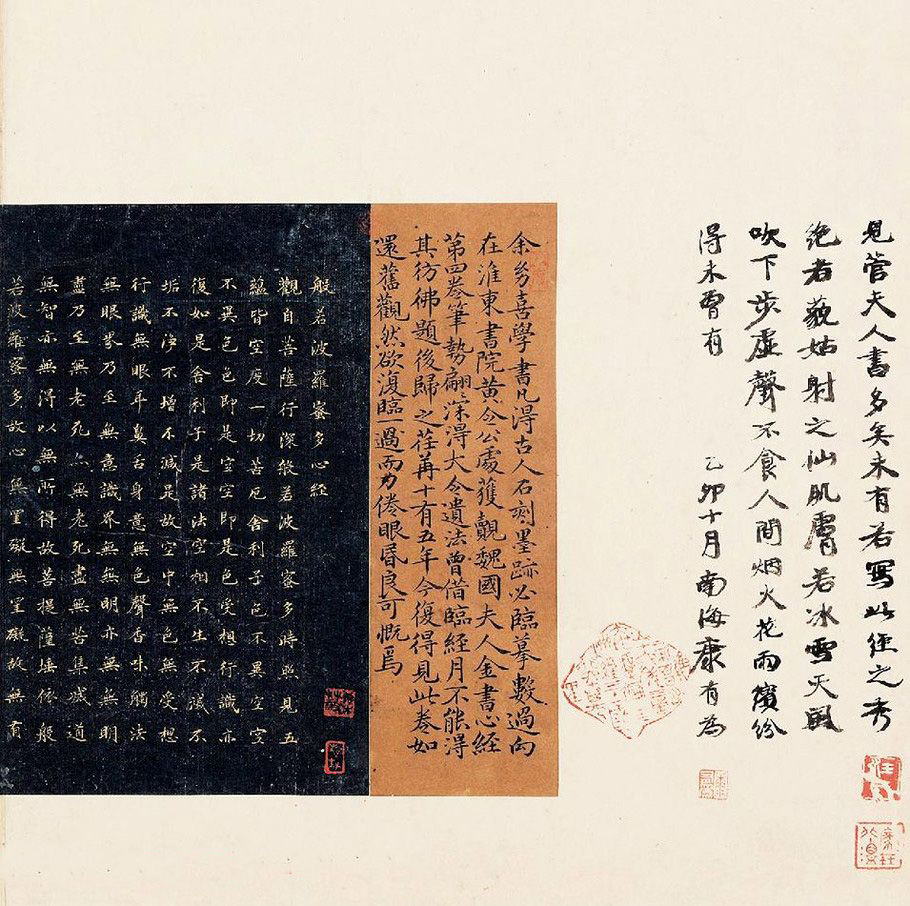 見管夫人書多矣未有若寫此經之秀
絕者藐姑射之仙肌膚若冰雪天風
吹下步虛聲不食人間烟火花雨繽紛
得未曾有　乙卯十月南海康有為
余幼喜學書凡得古人石刻墨跡必臨摹數過向
在淮東書院黃令公處獲覩魏國夫人金書心經
第四卷筆勢翩〻深得大令遺法曾借臨經月不能得
其彷彿題後歸之荏苒十有五年今復得見此卷如
還舊觀然欲復臨一過而力倦眼昏良可慨焉
般若波羅蜜多心經
觀自菩薩行深般若波羅蜜多時照見五
蘊皆空度一切苦厄舍利子色不異空空
不異色色即是空空即是色受想行識亦
復如是舍利子是諸法空相不生不滅不
垢不淨不增不減是故空中無色無受想
行識無眼耳鼻舌身意無色聲香味觸法
無眼界乃至無意識界無無明亦無無明
盡乃至無老死亦無老死盡無苦集滅道
無智亦無得以無所得故菩提薩埵依般
若波羅蜜多故心無罣礙無罣礙故無有